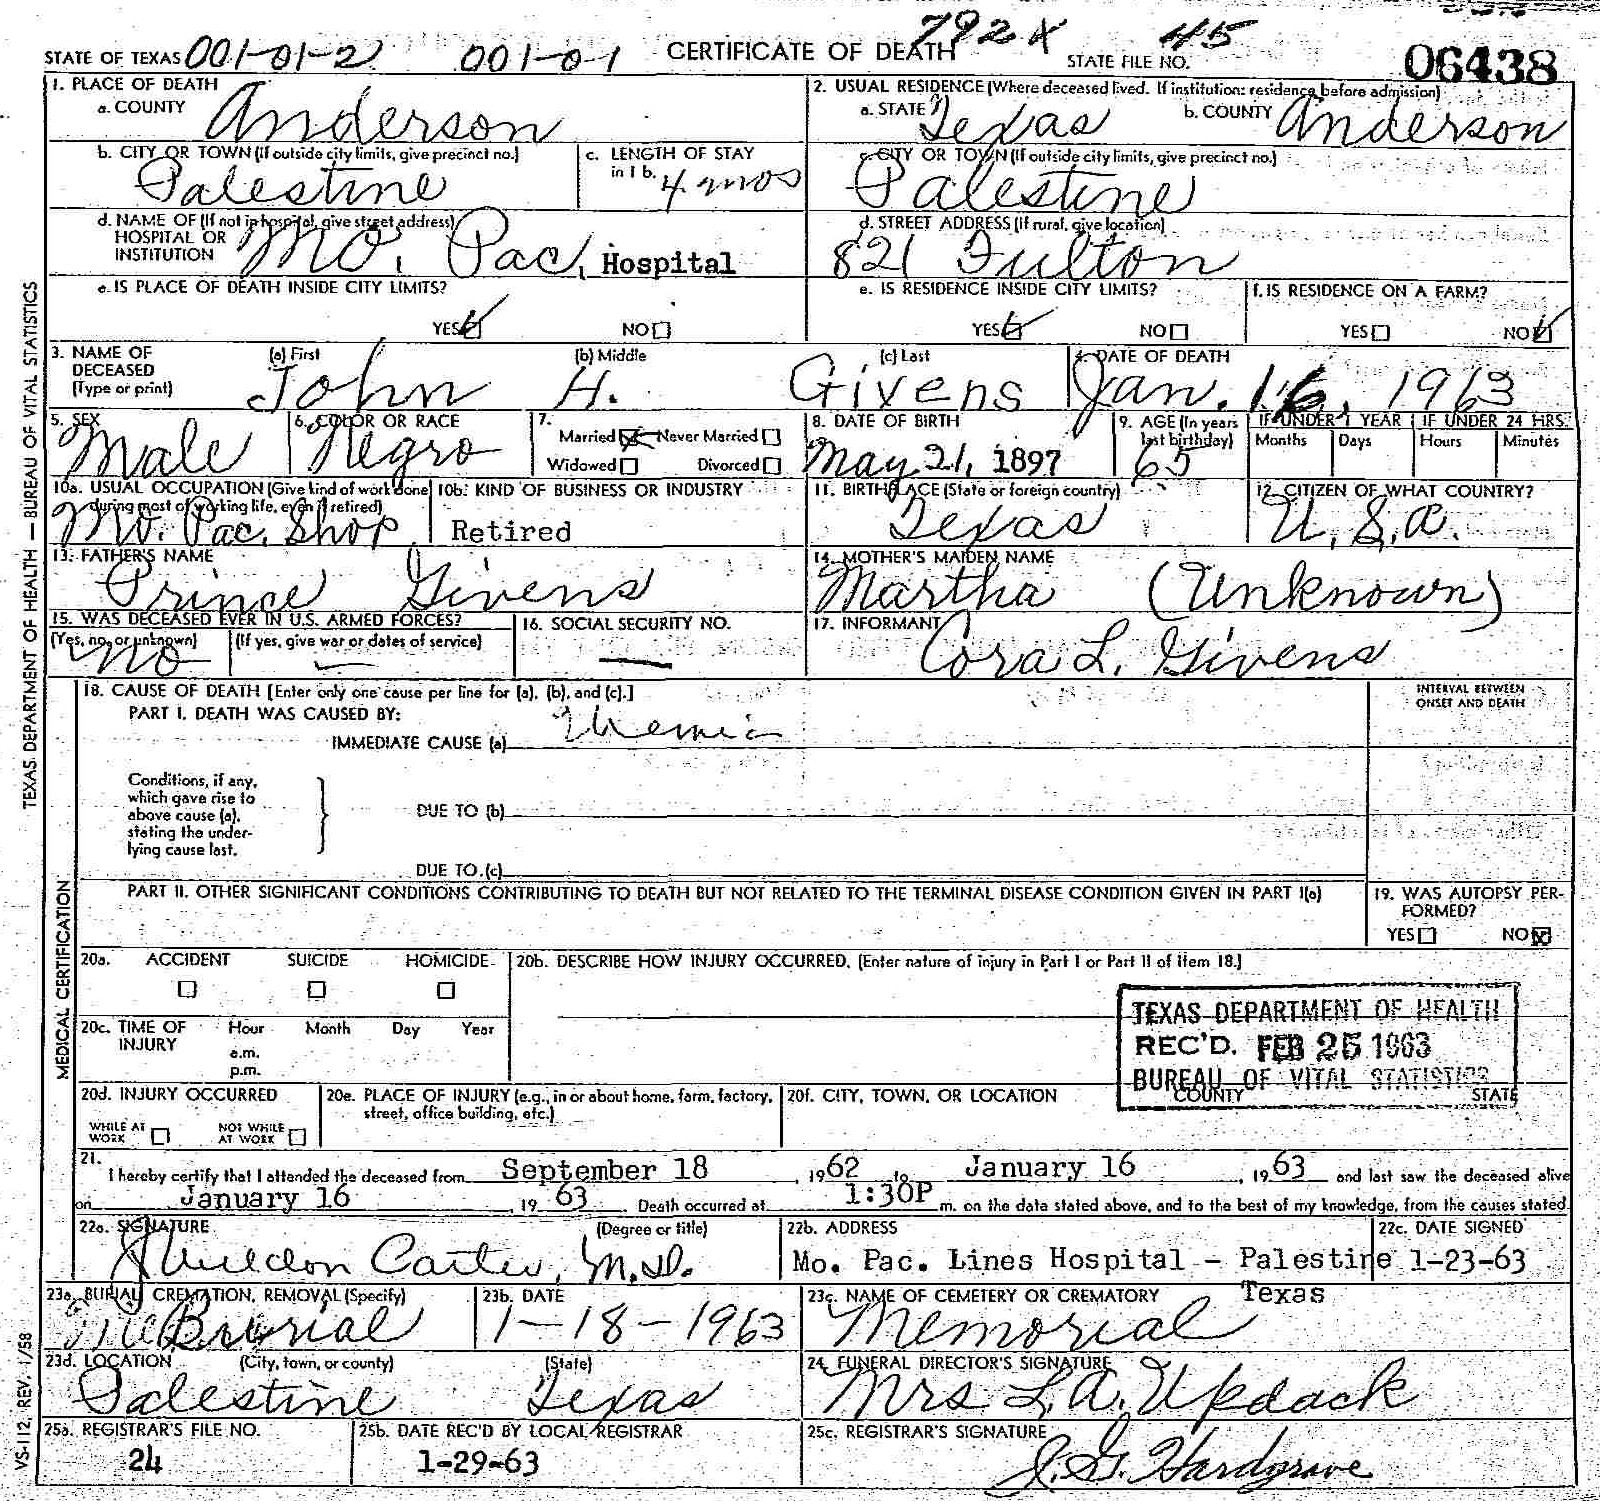 792X 45
STATE OF TEXAS 001-01-2 001-01 CERTIFICATE OF DEATH STATE FILE NO. 06438
1. PLACE OF DEATH
a. COUNTY Anderson
2. USUAL RESIDENCE (Where deceased lived. If institution: residence before admission)
a. STATE Texas b. COUNTY Anderson
b. CITY OR TOWN (If outside city limits, give precinct no.)
Palestine
c. LENGTH OF STAY
in 1 b. 4 mos
c. CITY OR TOWN (If outside city limits, give precinct no.)
Palestine
d. NAME OF (If not in hospital, give street address)
HOSPITAL OR
INSTITUTION Mo. Pac. Hospital
d. STREET ADDRESS (If rural, give location)
821 Fulton
e. IS PLACE OF DEATH INSIDE CITY LIMITS?
YES NO
e. IS RESIDENCE INSIDE CITY LIMITS?
YES NO
f. IS RESIDENCE ON A FARM?
YES NO
3. NAME OF
DECEASED
(Type or print)
(a) First (b) Middle (c) Last
John H. Givens
4. DATE OF DEATH
Jan. 16, 1963
5. SEX
Male
6. COLOR OR RACE
Negro
7.
Married Never Married
Widowed Divorced
8. DATE OF BIRTH
May 21, 1897
9. AGE (In years
last birthday)
65
IF UNDER 1 YEAR IF UNDER 24 HRS.
Months Days Hours Minutes
10a. USUAL OCCUPATION (Give kind of work done
during most of working life, even if retired)
Mo. Pac. Shop
10b. KIND OF BUSINESS OR INDUSTRY
Retired
11. BIRTHPLACE (State or foreign country)
Texas
12. CITIZEN OF WHAT COUNTRY?
U.S.A.
13. FATHER'S NAME
Prince Givens
14. MOTHER'S MAIDEN NAME
Martha (Unknown)
15. WAS DECEASED EVER IN U.S. ARMED FORCES?
(Yes, no, or unknown) (If yes, give war or dates of service)
No —
16. SOCIAL SECURITY NO.
—
17. INFORMANT
Cora L. Givens
18. CAUSE OF DEATH [Enter only one cause per line for (a), (b), and (c).]
PART I. DEATH WAS CAUSED BY:
IMMEDIATE CAUSE (a) Uremia
INTERVAL BETWEEN
ONSET AND DEATH
Conditions, if any,
which gave rise to
above cause (a),
stating the under-
lying cause last.
DUE TO (b)
DUE TO (c)
PART II. OTHER SIGNIFICANT CONDITIONS CONTRIBUTING TO DEATH BUT NOT RELATED TO THE TERMINAL DISEASE CONDITION GIVEN IN PART I(a)
19. WAS AUTOPSY PER-
FORMED?
YES NO
20a. ACCIDENT SUICIDE HOMICIDE
20b. DESCRIBE HOW INJURY OCCURRED. (Enter nature of injury in Part I or Part II of item 18.)
20c. TIME OF
INJURY
Hour Month Day Year
a.m.
p.m.
TEXAS DEPARTMENT OF HEALTH
REC'D. FEB 25 1963
BUREAU OF VITAL STATISTICS
20d. INJURY OCCURRED
WHILE AT
WORK
NOT WHILE
AT WORK
20e. PLACE OF INJURY (e.g., in or about home, farm, factory,
street, office building, etc.)
20f. CITY, TOWN, OR LOCATION COUNTY STATE
21.
I hereby certify that I attended the deceased from September 18, 1962 to January 16, 1963 and last saw the deceased alive
on January 16, 1963. Death occurred at 1:30P m. on the date stated above, and to the best of my knowledge, from the causes stated
22a. SIGNATURE (Degree or title)
Carter, M.D.
22b. ADDRESS
Mo. Pac. Lines Hospital - Palestine
Texas
22c. DATE SIGNED
1-23-63
23a. BURIAL, CREMATION, REMOVAL (Specify)
Burial
23b. DATE
1-18-1963
23c. NAME OF CEMETERY OR CREMATORY
Memorial
23d. LOCATION (City, town, or county) (State)
Palestine Texas
24. FUNERAL DIRECTOR'S SIGNATURE
Mrs L.A. Updack
25a. REGISTRAR'S FILE NO.
24
25b. DATE REC'D BY LOCAL REGISTRAR
1-29-63
25c. REGISTRAR'S SIGNATURE
J. G. Hardgrave
TEXAS DEPARTMENT OF HEALTH — BUREAU OF VITAL STATISTICS
MEDICAL CERTIFICATION
VS-112, REV. 1/58